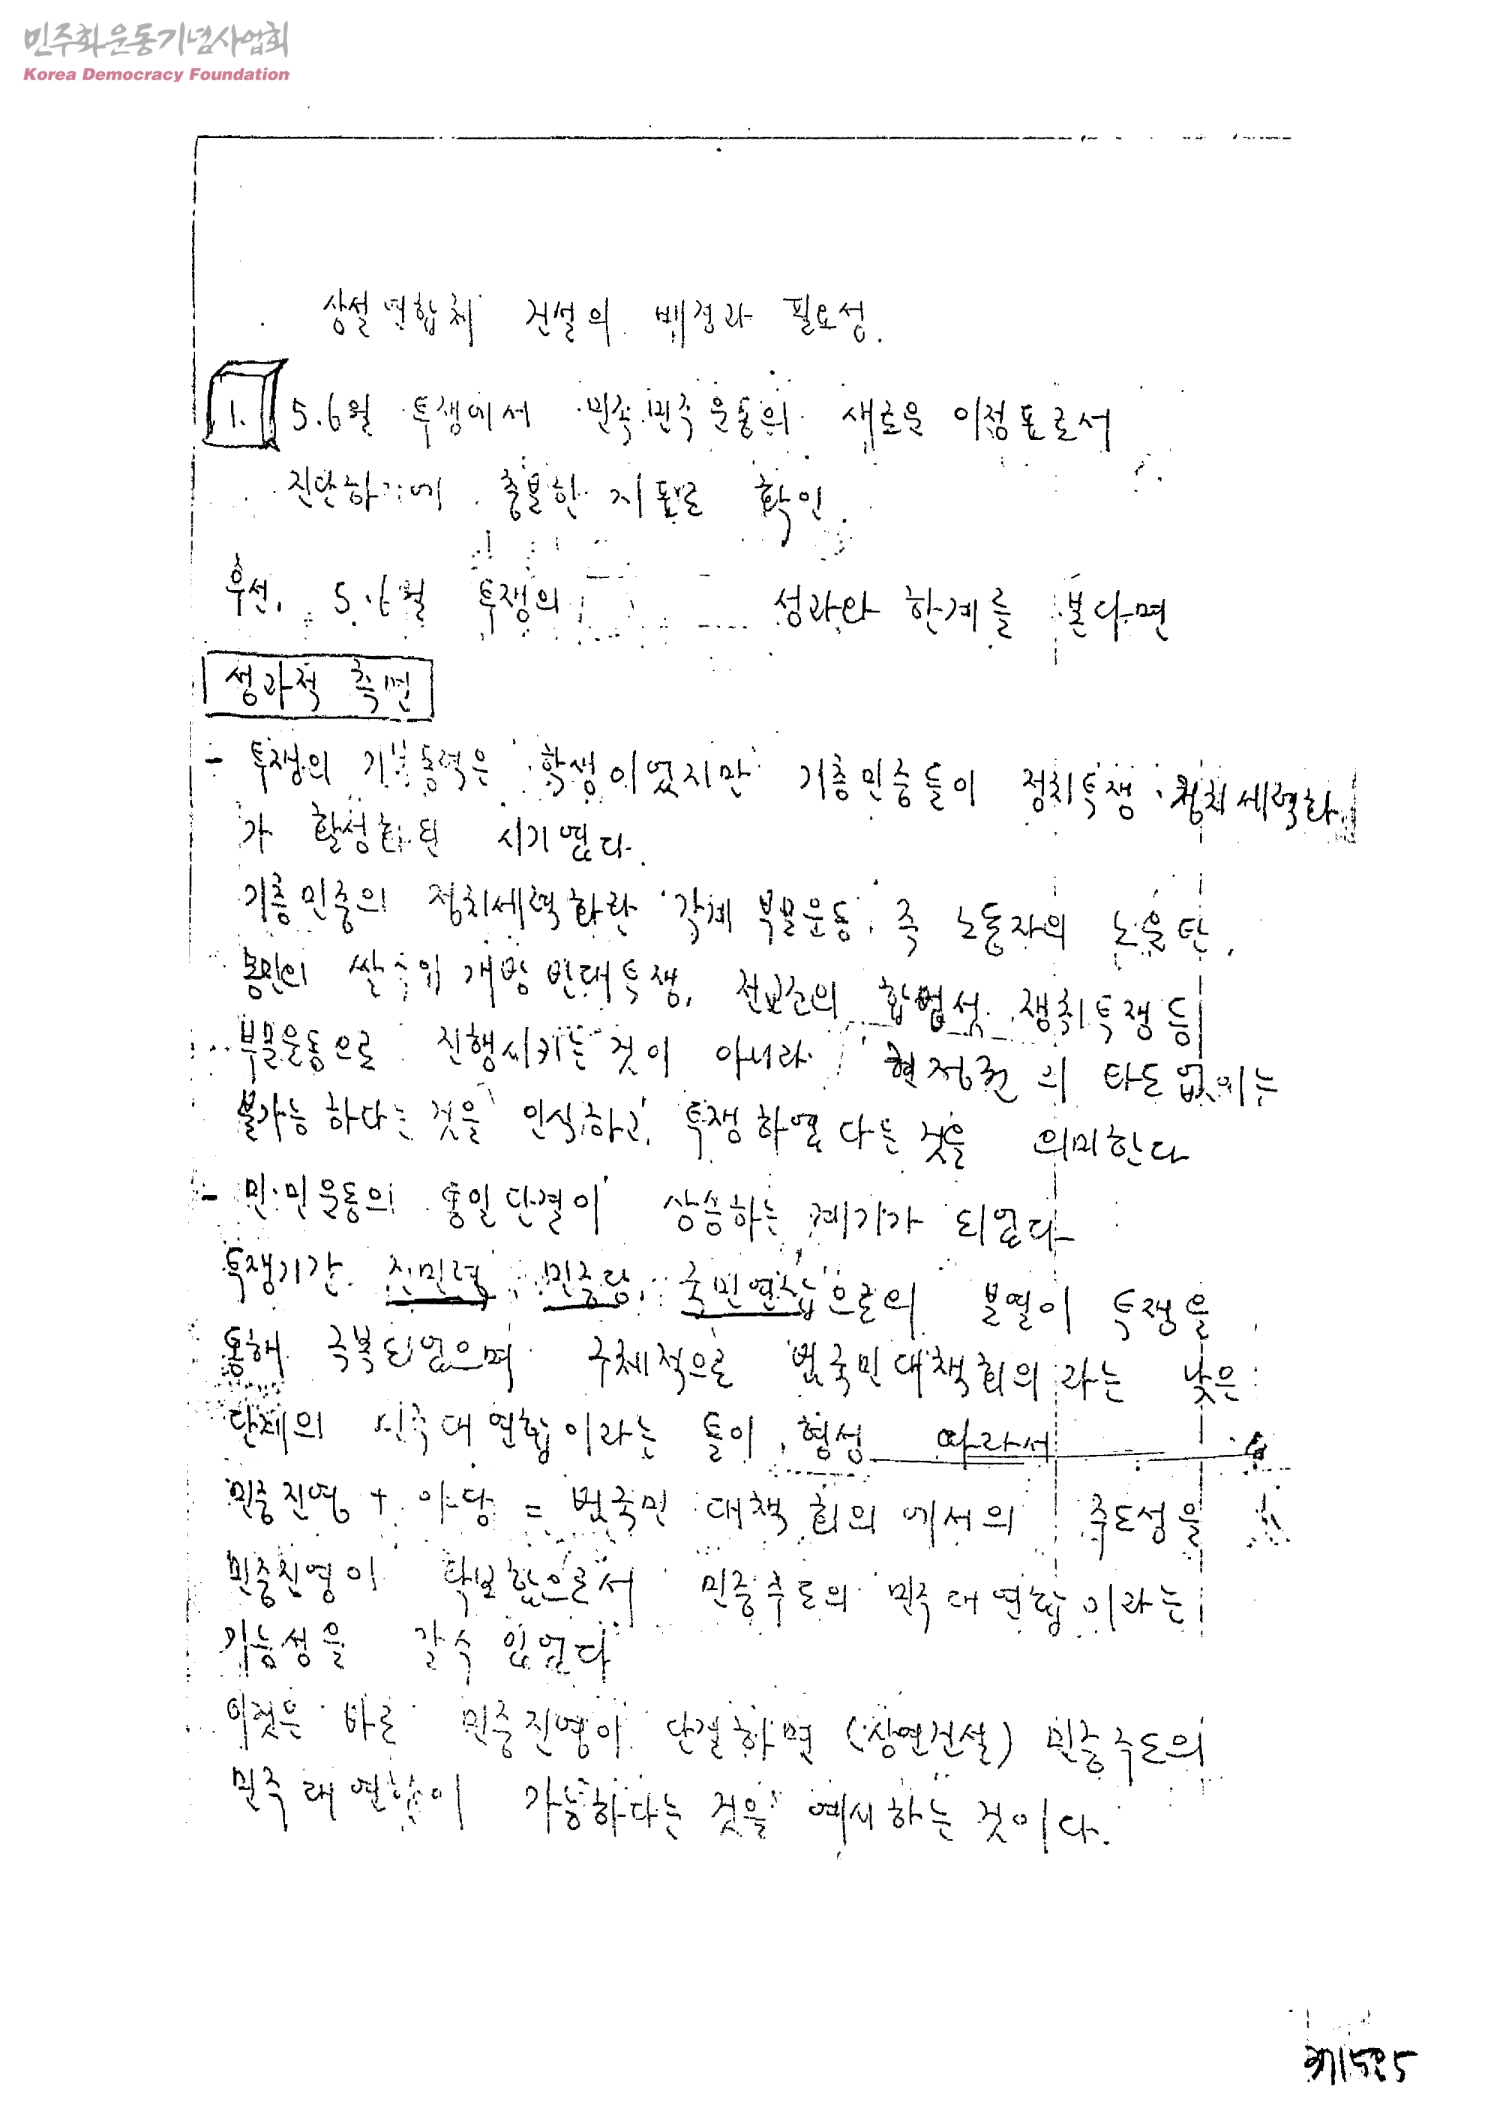 민주화운동기념사업회
Korea Democracy Foundation
상설연합체 건설의 배경과 필요성.
1. 5.6월 투쟁에서 민족.민주운동의 새로운 이정표로서
진단하기에 충분한 지표로 확인.
우선, 5.6월 투쟁의 성과와 한계를 본다면
성과적 측면
- 투쟁의 기본동력은 학생이었지만 기층민중들이 정치투쟁.정치세력화
가 활성화된 시기였다.
기층민중의 정치세력화란 각계 부문운동, 즉 노동자의 노운탄,
농민의 쌀수위 개방반대투쟁, 전교조의 합법성 쟁취투쟁등
부문운동으로 진행시키는 것이 아니라 현정권의 타도없이는
불가능하다는 것을 인식하고, 투쟁하였다는 것을 의미한다
- 민.민운동의 통일단결이 상승하는 계기가 되었다
투쟁기간 전민련, 민중당, 국민연합으로의 분열이 투쟁을
통해 극복되었으며 구체적으로 범국민대책회의라는 낮은
단계의 민주대연합이라는 틀이 형성 따라서
민중진영 + 야당 = 범국민 대책 회의에서의 주도성을
민중진영이 확보함으로서 민중주도의 민주대연합이라는
가능성을 갈수 있었다
이것은 바로 민중진영이 단결하면 (상연건설) 민중주도의
민주대연합이 가능하다는 것을 예시하는 것이다.